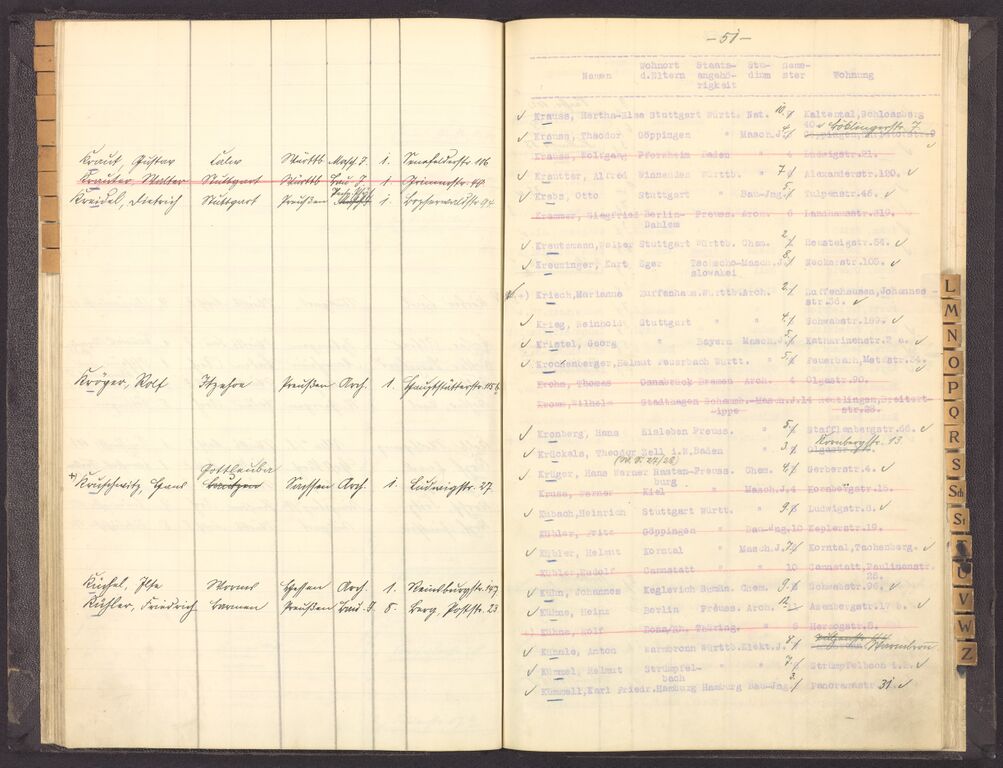 Kraut, Gustav Aalen Württb. Masch. J. 1. Senefelderstr. 106
Krauter, Walter Stuttgart Württb. Bau J. 1. 40
Kreidel, Dietrich Stuttgart Preußen 1
Kröger, Rolf Itzehoe Preußen Arch. 1. Hauptstätterstr.
Gottleuba
Hans Sachsen Arch. 1. Ludwigstr. 27
Küchel, Ilse Worms Hessen Arch. 1. Reinsburgstr. 147
Friedrich Barmen Preußen Bau. J. 5. Berg, Poststr. 23
-51-
Wohnort Staats- Stu- Seme-
Namen d.Eltern angehö- dium ster Wohnung
rigkeit
Krauss, Hertha-Else Stuttgart Württ. Nat. 10. Kaltental, Schlossberg
Krauss, Theodor Göppingen " Masch.J. 4. Böblingerstr. 7
Krauss, Wolfgang Pforzheim Baden " 4 Ludwigstr.21.
Krautter, Alfred Winnenden Württb. " 7. Alexanderstr.120.
Krebs, Otto Stuttgart " Bau-Jng. 5. Tulpenstr.46.
Krammer, Siegfried Berlin- Preuss. Arch. 6 Landhausstr.219.
Dahlem
Krautzmann, Walter Stuttgart Württb. Chem. 2. Heusteigstr.54.
Kreuzinger, Kart Eger Tschecho- Masch.J. 8. Neckarstr.105.
slowakei
Kriech, Marianne Zuffenhaus. Württb. Arch. 2. Zuffenhausen, Johannes-
str.36.
Krieg, Reinhold Stuttgart " " 4. Schwabstr.189.
Kristel, Georg " Bayern Masch.J. 5. Katharinenstr.2 a.
Krochenberger, Helmut Feuerbach Württ. " 5. Feuerbach,
Krohn, Thomas Osnabrück Bremen Arch. 4 Olgastr.90.
Wilhelm Stadthagen Schaumb.- Masch.J. 14 Reutlingen,
-ippe str.28.
Kronberg, Hans Eisleben Preuss. " 5. Stafflenbergstr.66.
Krückals, Theodor Zell i.W. Baden " 3. Kornbergstr. 13
(W. S. 27/28)
Krüger, Hans Werner Rasten- Preuss. Chem. 4. Gerberstr.4.
burg
Kruse, Werner Kiel " Masch.J. 4 Kornbergstr.15.
Kubach, Heinrich Stuttgart Württ. " 9. Ludwigstr.6.
Kübler, Fritz Göppingen " Bau-Jng. 10 Keplerstr.19.
Kübler, Helmut Korntal " Masch.J. 7. Korntal, Tachenberg.
Kübler, Rudolf Cannstatt " " 10 Cannstatt, Paulinenstr.
26.
Kühn, Johannes Keglevich Rumän. Chem. 9. Schwabstr.96.
Kühne, Heinz Berlin Preuss. Arch. 12. Asenbergstr.17 b.
Kühne, Rolf Bonn/Rh. Thüring. " 8 Herzogstr.8.
Kühnle, Anton Warmbronn Württb. Elekt.J. 8. Warmbronn
Kümmel, Helmut Strümpfel- " " 7. Strümpfelbach i.R.
bach
Kümmell, Karl Friedr. Hamburg Hamburg Bau-Jng. 3. Panoramastr. 31
L
M
N
O
P
Q
R
S
Sch
St
T
U
V
W
Z